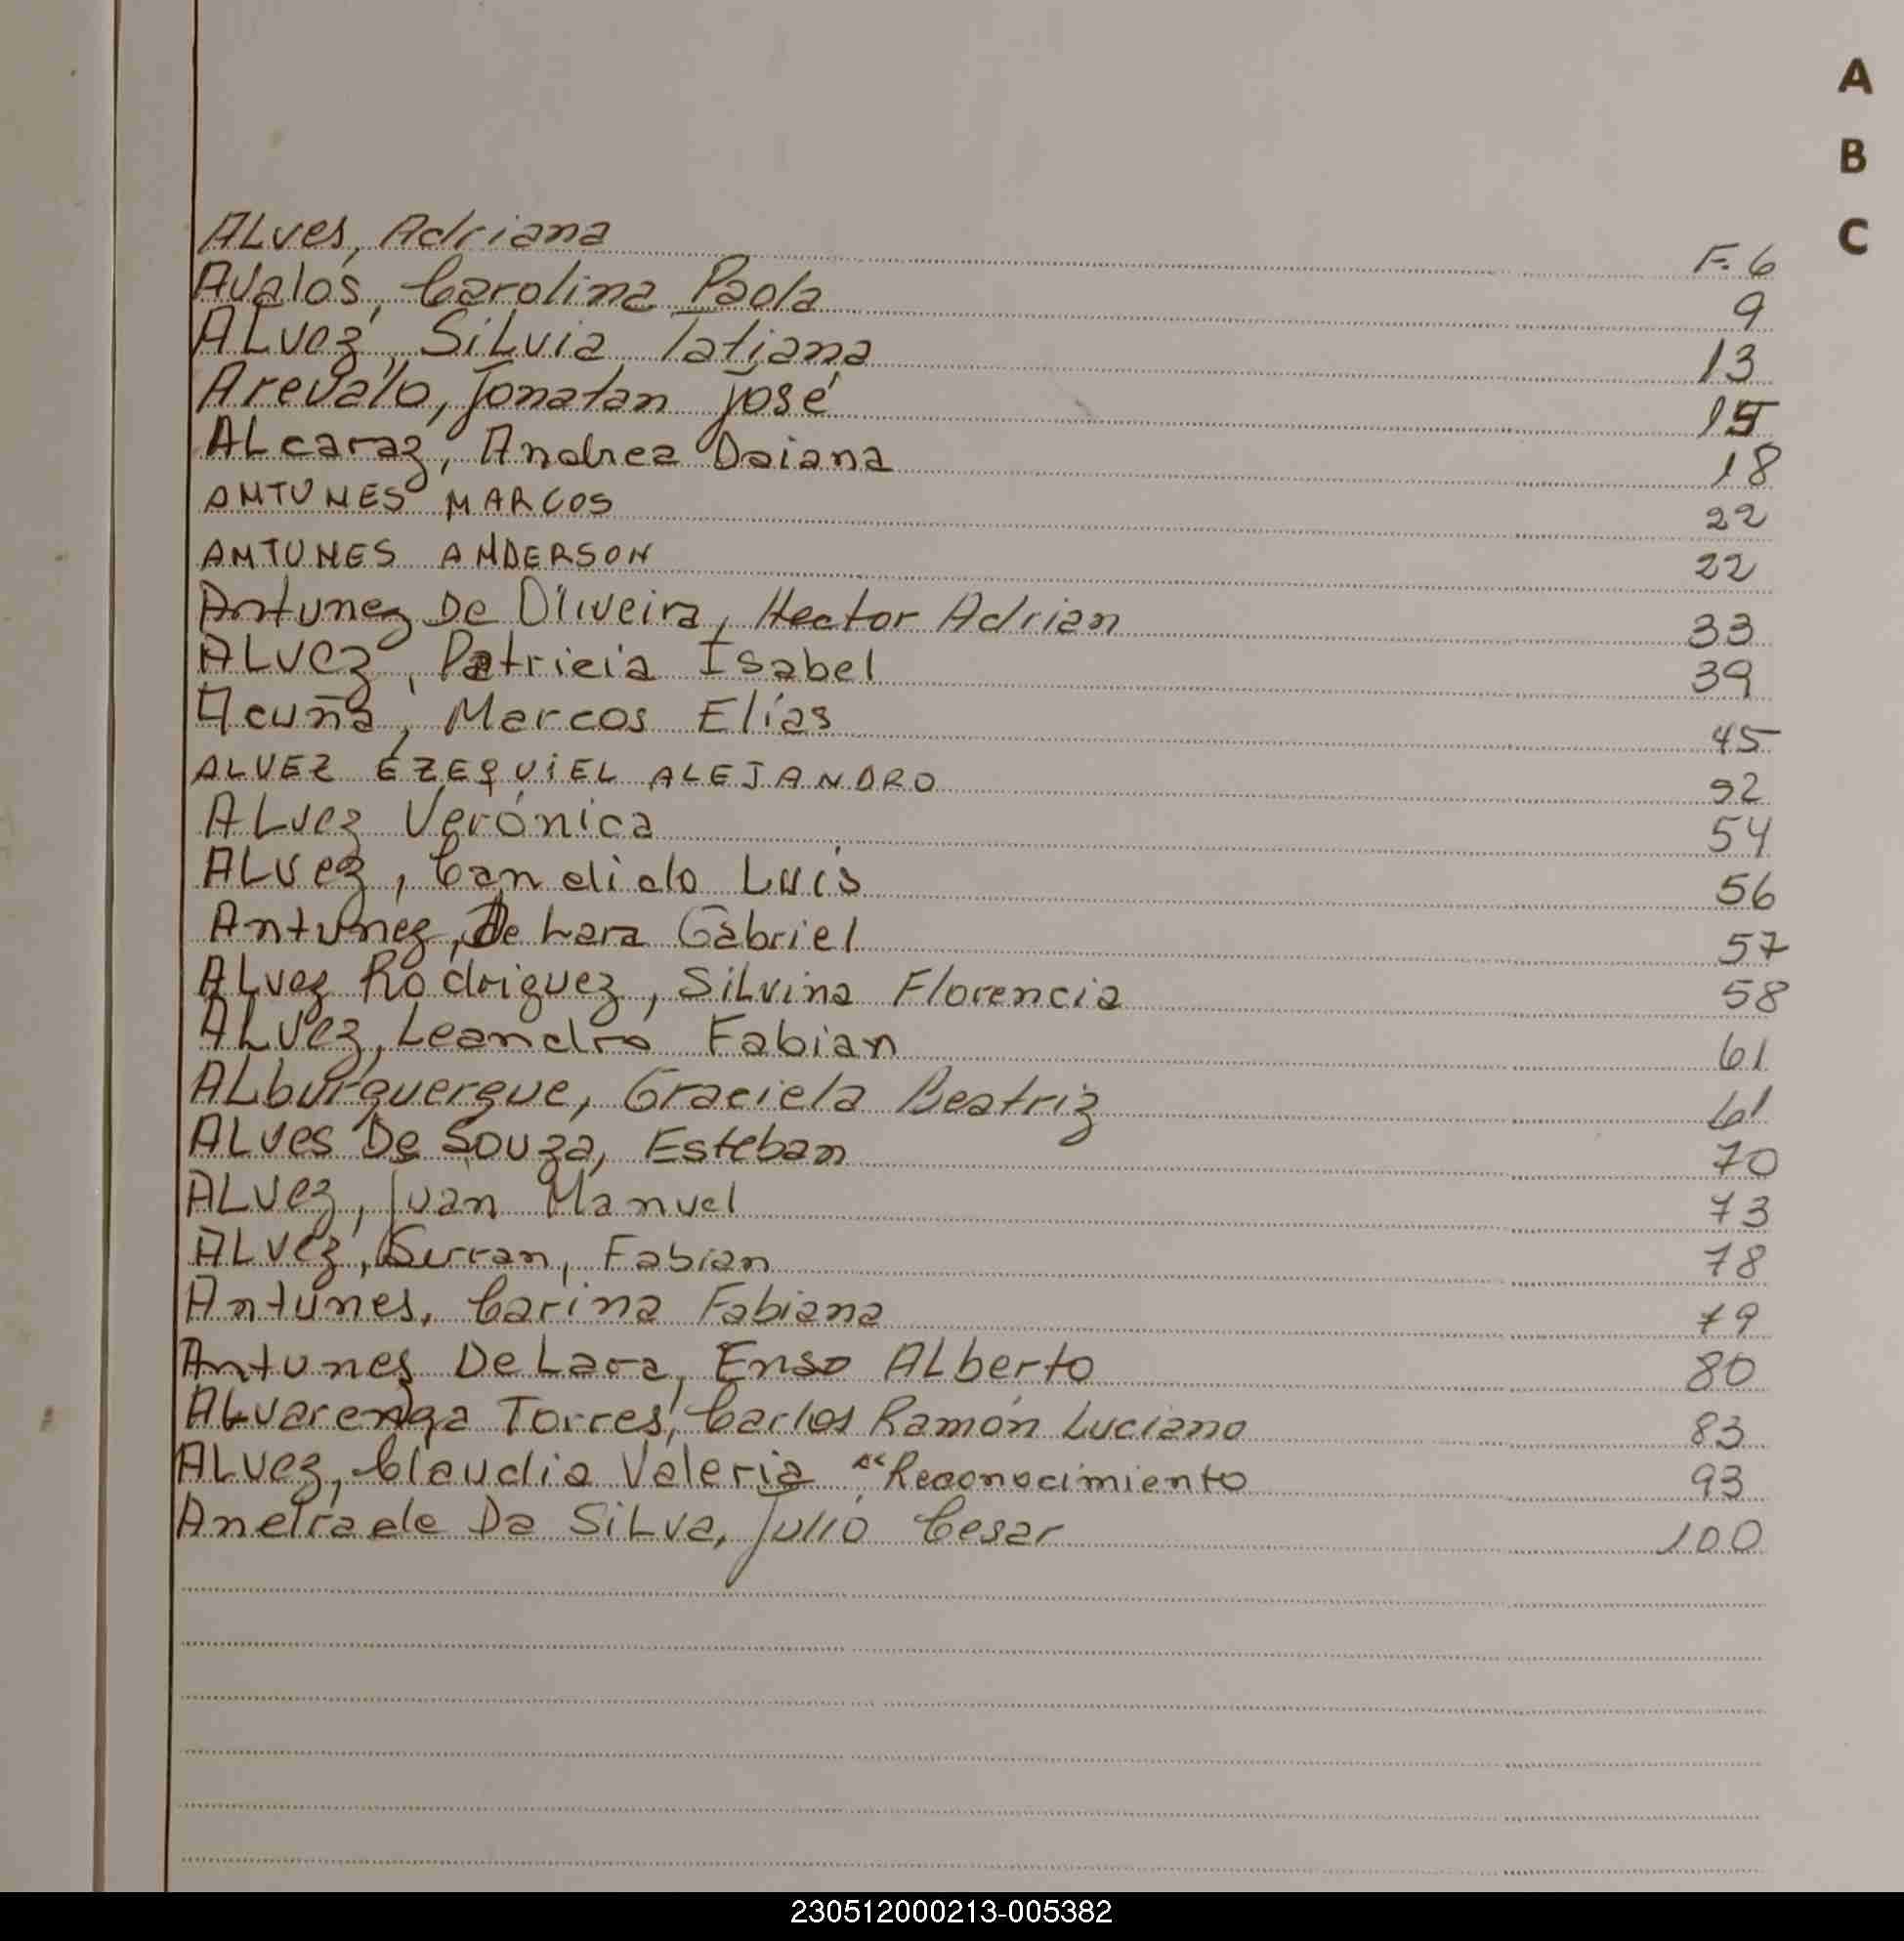 A
B
C
ALves, Adriana F. 6
Avalos, Carolina Paola 9
ALvez, SiLvia Tatiana 13
Arevalo, Jonatan José 15
ALcaraz, Andrea Daiana 18
ANTUNES MARCOS 22
ANTUNES ANDERSON 22
Antunez De Oliveira, Hector Adrian 33
ALvez, Patricia Isabel 39
Acuña, Marcos Elías 45
ALVEZ EZEQUIEL ALEJANDRO 52
ALvez Verónica 54
ALvez, Candido Luis 56
Antunez, De Lara Gabriel 57
ALvez Rodriguez, SiLvina Florencia 58
ALvez, Leandro Fabian 61
ALburquerque, Graciela Beatriz 61
ALves De Souza, Esteban 70
ALvez, Juan Manuel 73
ALvez, Fabian 78
Antunes, Carina Fabiana 79
Antunes De Lara, Enso ALberto 80
ALvarenga Torres, Carlos Ramón Luciano 83
ALvez, Claudia Valeria "Reconocimiento 93
Andrade Da SiLva, Julio Cesar 100
230512000213-005382